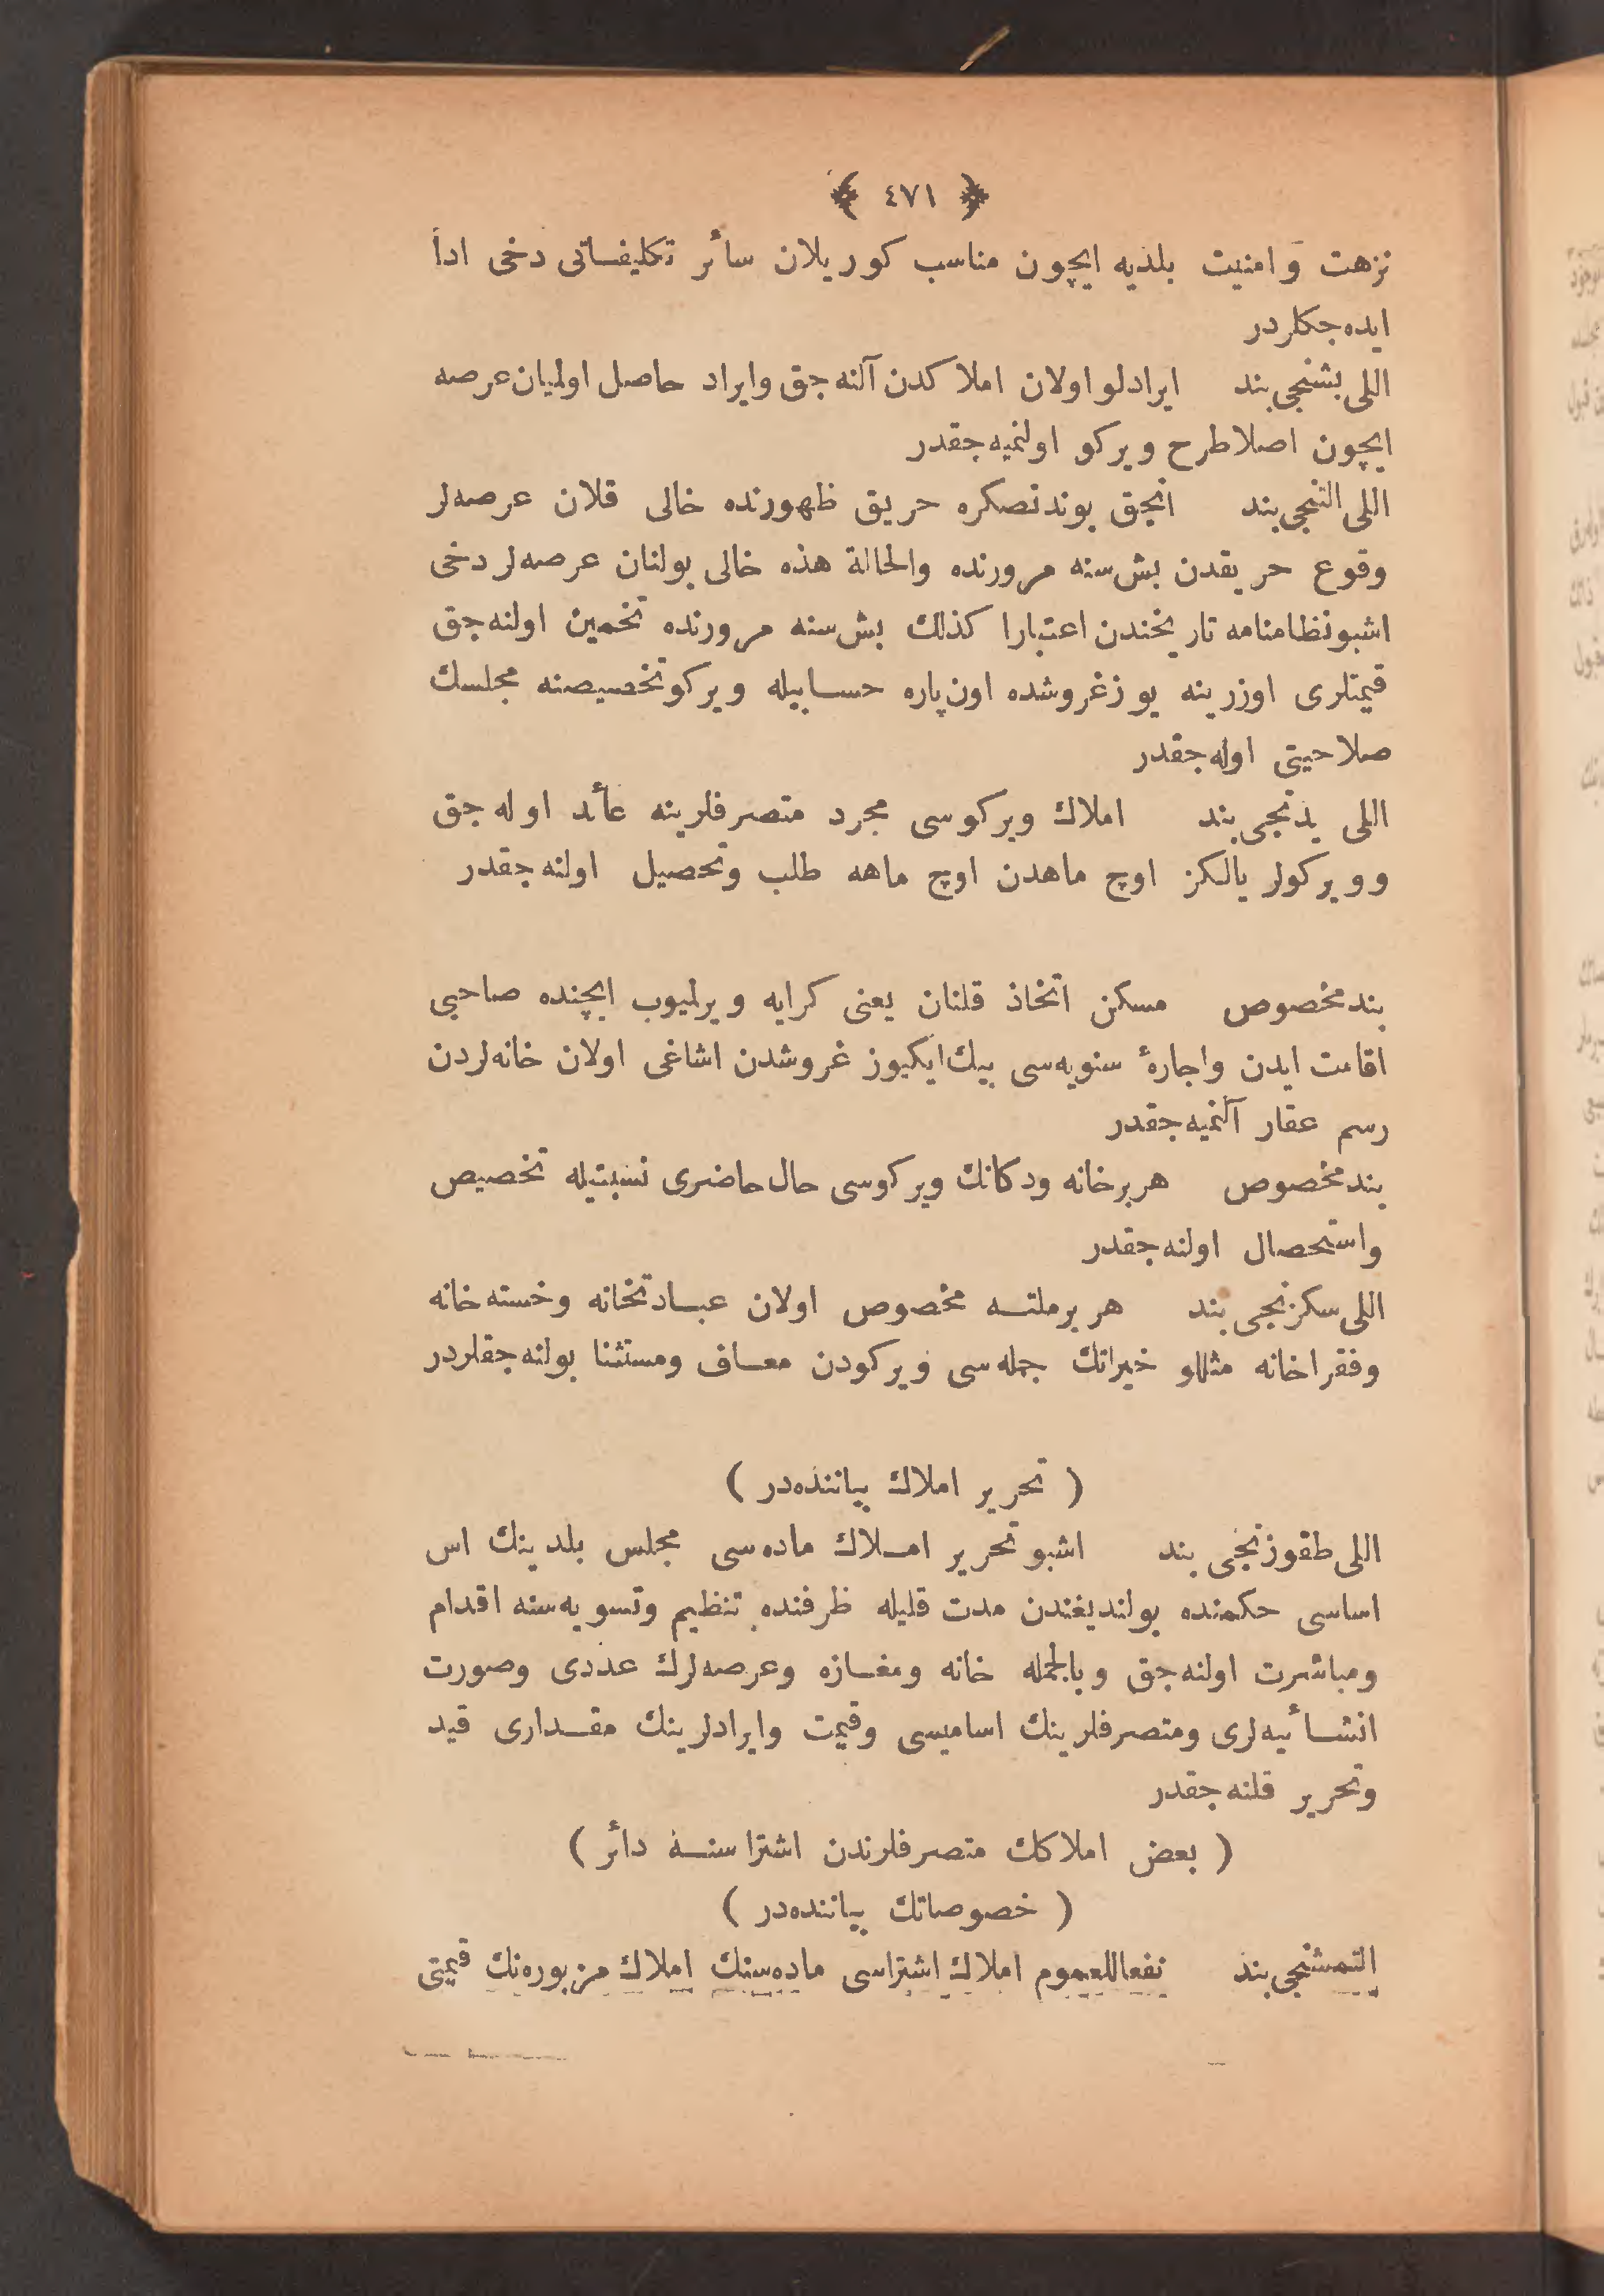 ﴿ ٤٧١ ﴾
نزهت و امنیت بلدیه ایچون مناسب كوریلان سائر تكلیفاتی دخی ادا
ایده‌جكلردر
اللی بشنجی بند ایرادلو اولان املاكدن آلنه‌جق وایراد حاصل اولمیان عرصه
ایچون اصلا طرح ویركو اولنمیه‌جقدر
اللی التنجی بند انجق بوندنصكره حریق ظهورنده خالی قلان عرصه‌لر
وقوع حریقدن بش سنه مرورنده والحالة هذه خالی بولنان عرصه‌لر دخی
اشبو نظامنامه تاریخندن اعتبارا كذلك بش سنه مرورنده تخمین اولنه‌جق
قیمتلری اوزرینه یوز غروشده اون پاره حسابیله ویركو تخصیصنه مجلسك
صلاحیتی اوله‌جقدر
اللی یدنجی بند املاك ویركوسی مجرد متصرفلرینه عائد اوله‌جق
وویركولر یالكز اوچ ماهدن اوچ ماهه طلب وتحصیل اولنه‌جقدر
بند مخصوص مسكن اتخاذ قلنان یعنی كرایه ویرلمیوب ایچنده صاحبی
اقامت ایدن واجارهٔ سنویه‌سی بیك ایكیوز غروشدن اشاغی اولان خانه‌لردن
رسم عقار آلنمیه‌جقدر
بند مخصوص هر برخانه ودكانك ویركوسی حال حاضری نسبتیله تخصیص
واستحصال اولنه‌جقدر
اللی سكزنجی بند هر برملته مخصوص اولان عبادتخانه وخسته‌خانه
وفقراخانه مثللو خیراتك جمله‌سی ویركودن معاف ومستثنا بولنه‌جقلردر
( تحریر املاك بیاننده‌در )
اللی طقوزنجی بند اشبو تحریر املاك ماده‌سی مجلس بلدینك اس
اساسی حكمنده بولندیغندن مدت قلیله ظرفنده تنظیم وتسویه‌سنه اقدام
ومباشرت اولنه‌جق وبالجمله خانه ومغازه وعرصه‌لرك عددی وصورت
انشائیه‌لری ومتصرفلرینك اسامیسی وقیمت وایرادلرینك مقداری قید
وتحریر قلنه‌جقدر
( بعض املاكك متصرفلرندن اشتراسنه دائر )
( خصوصاتك بیاننده‌در )
التمشنجی بند نفعا للعموم املاك اشتراسی ماده‌سنك املاك مزبوره‌نك قیمتی